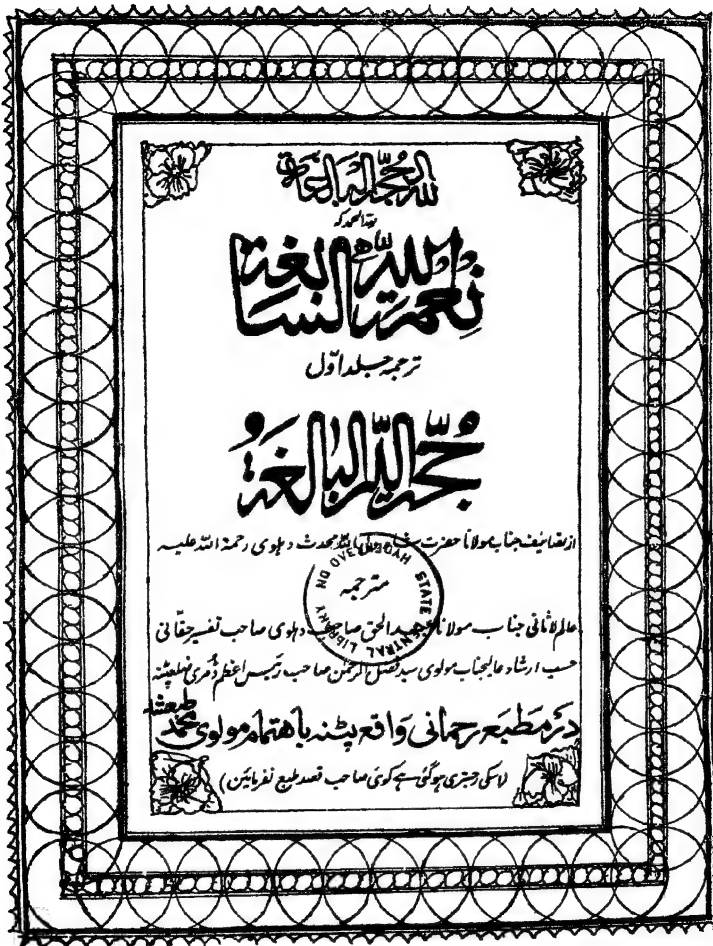 للہ الحجۃ البالغۃ
نعمۃ اللہ السابغۃ
ترجمہ جلد اوّل
حُجّۃ اللہ البالغۃ
از تصانیف جناب مولانا حضرت شاہ ولی اللہ محدث دہلوی رحمۃ اللہ علیہ
مترجمہ
عالم لاثانی جناب مولانا عبدالحق صاحب دہلوی صاحب تفسیر حقانی
حسب ارشاد عالیجناب مولوی سید فضل الرحمٰن صاحب رئیس اعظم ڈمری ضلع پٹنہ
در مطبع رحمانی واقع پٹنہ باہتمام مولوی محمد طبع شد
(اسکی رجسٹری ہوگئی ہے کوئی صاحب قصد طبع نفرمائین)
STATE CENTRAL LIBRARY